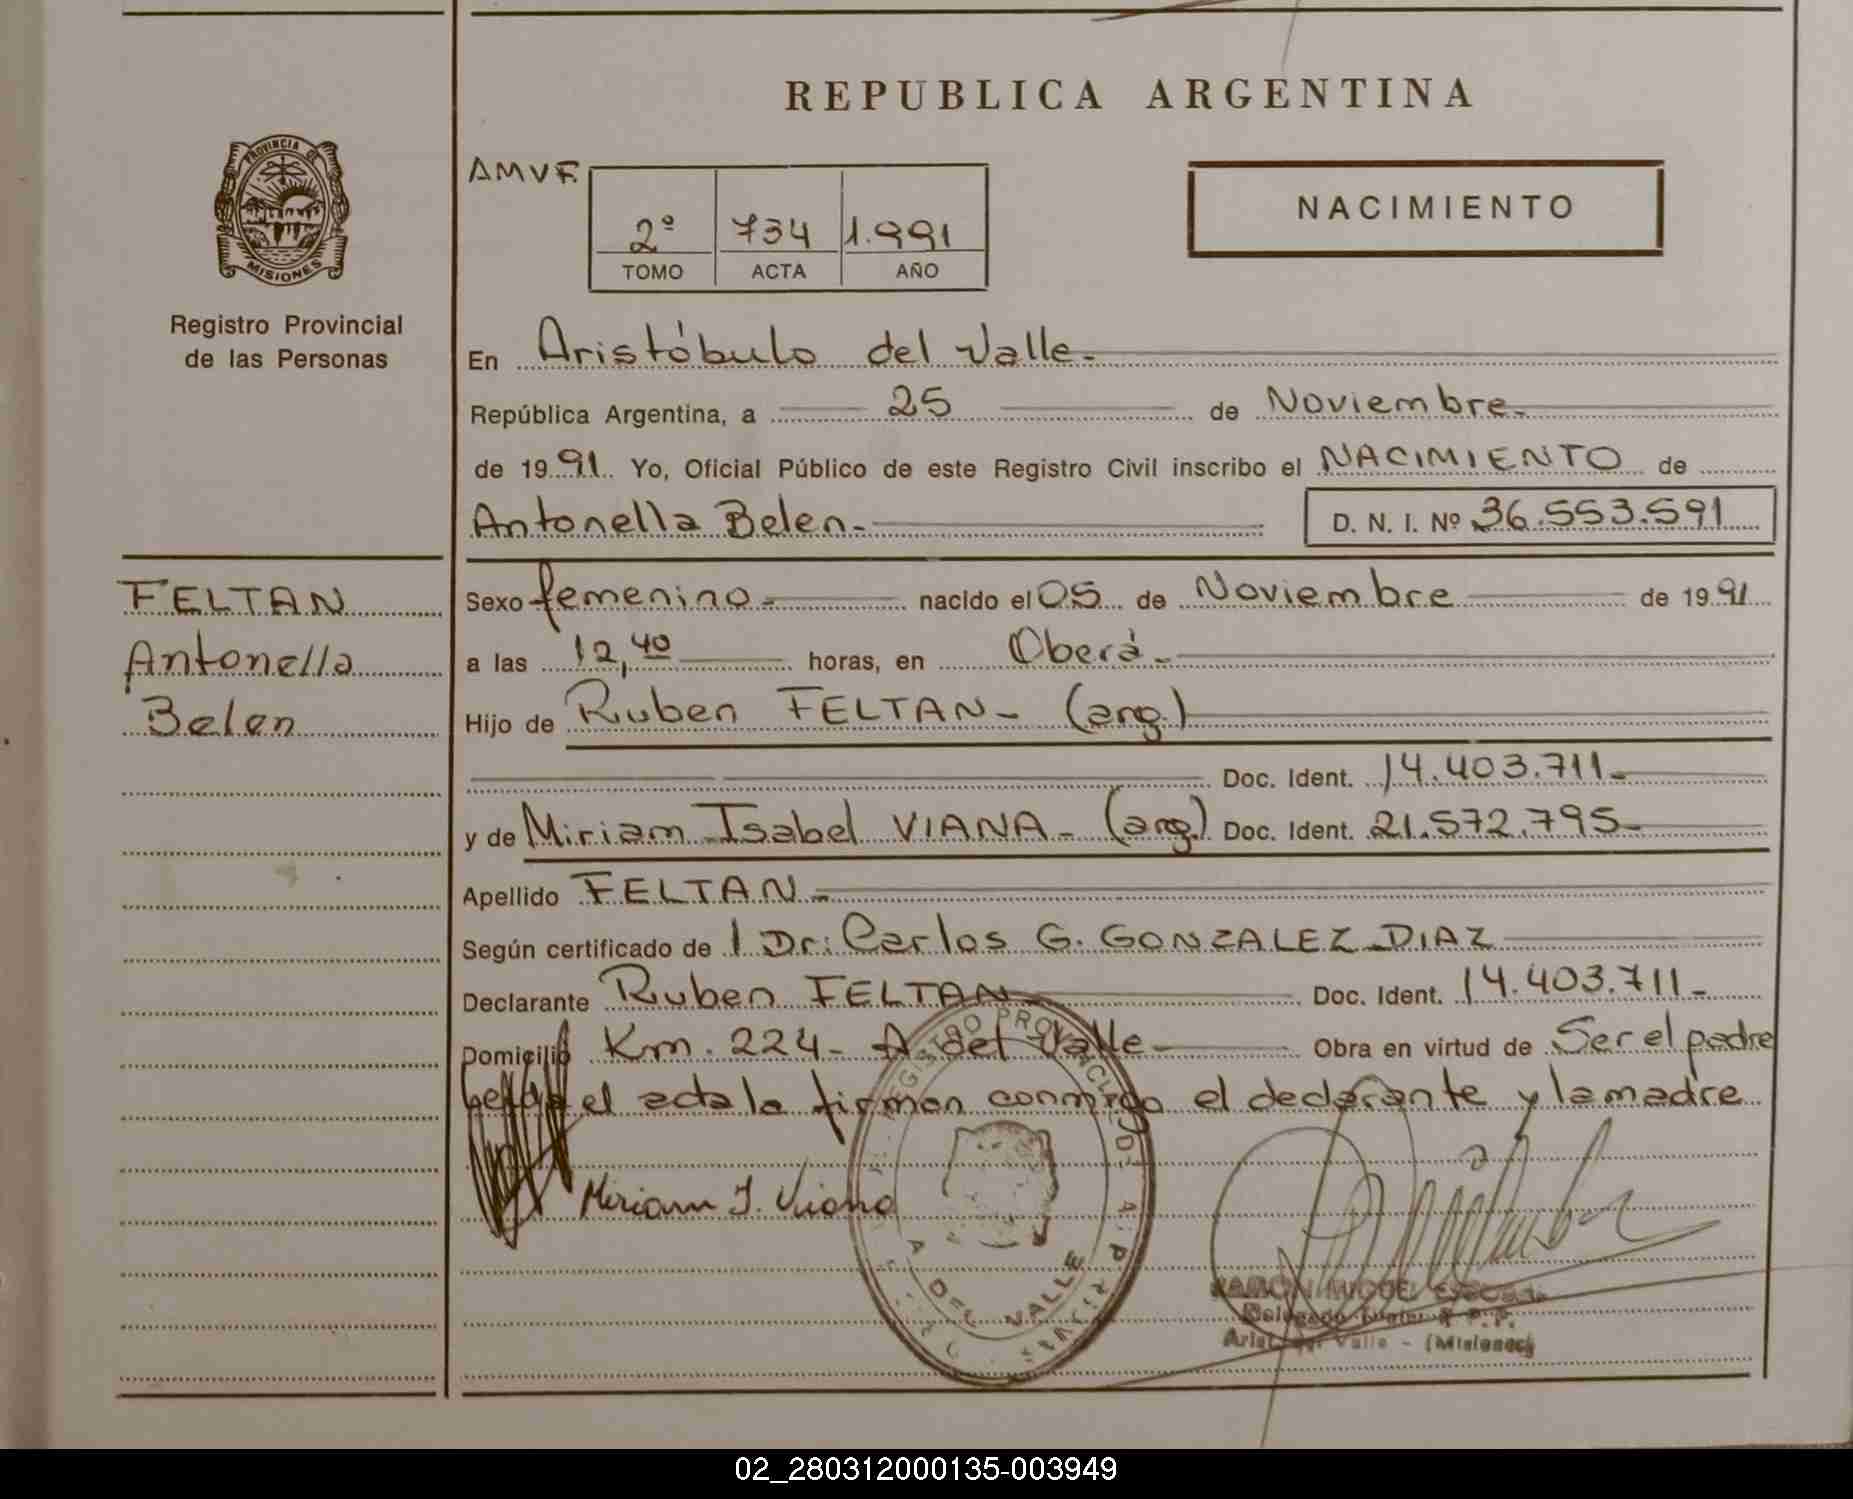 REPUBLICA ARGENTINA
PROVINCIA DE
MISIONES
Registro Provincial
de las Personas
AMVF.
2º 734 1.991
TOMO ACTA AÑO
NACIMIENTO
En Aristóbulo del Valle.-
República Argentina, a 25 de Noviembre.-
de 1991. Yo, Oficial Público de este Registro Civil inscribo el NACIMIENTO de
Antonella Belen.- D. N. I. Nº 36.553.591
FELTAN
Antonella
Belen
Sexo femenino.- nacido el 05 de Noviembre de 1991
a las 12,40 horas, en Oberá.-
Hijo de Ruben FELTAN- (arg.)
Doc. Ident. 14.403.711.-
y de Miriam Isabel VIANA- (arg.) Doc. Ident. 21.572.795-
Apellido FELTAN.-
Según certificado de l Dr: Carlos G. GONZALEZ DIAZ
Declarante Ruben FELTAN Doc. Ident. 14.403.711-
Domicilio Km. 224- A del Valle- Obra en virtud de Ser el padre
el acta la firman conmigo el declarante y la madre
Miriam I. Viana
REGISTRO PROVINCIAL DE
A. DEL VALLE
RAMON MIGUEL
Delegado R. P. P.
Valle - (Misiones)
02_280312000135-003949